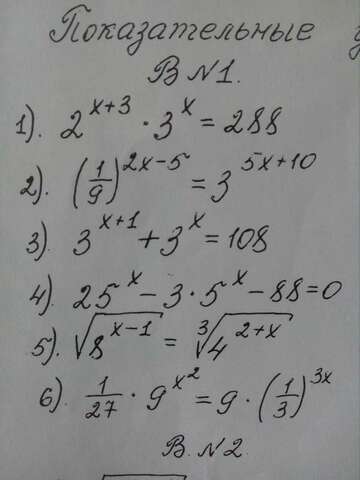 Показательные у
В №1.
1). 2^{x+3} · 3^x = 288
2). (1/9)^{2x-5} = 3^{5x+10}
3). 3^{x+1} + 3^x = 108
4). 25^x - 3 · 5^x - 88 = 0
5). √(8^{x-1}) = ∛(4^{2+x})
6). 1/27 · 9^{x^2} = 9 · (1/3)^{3x}
В. №2.